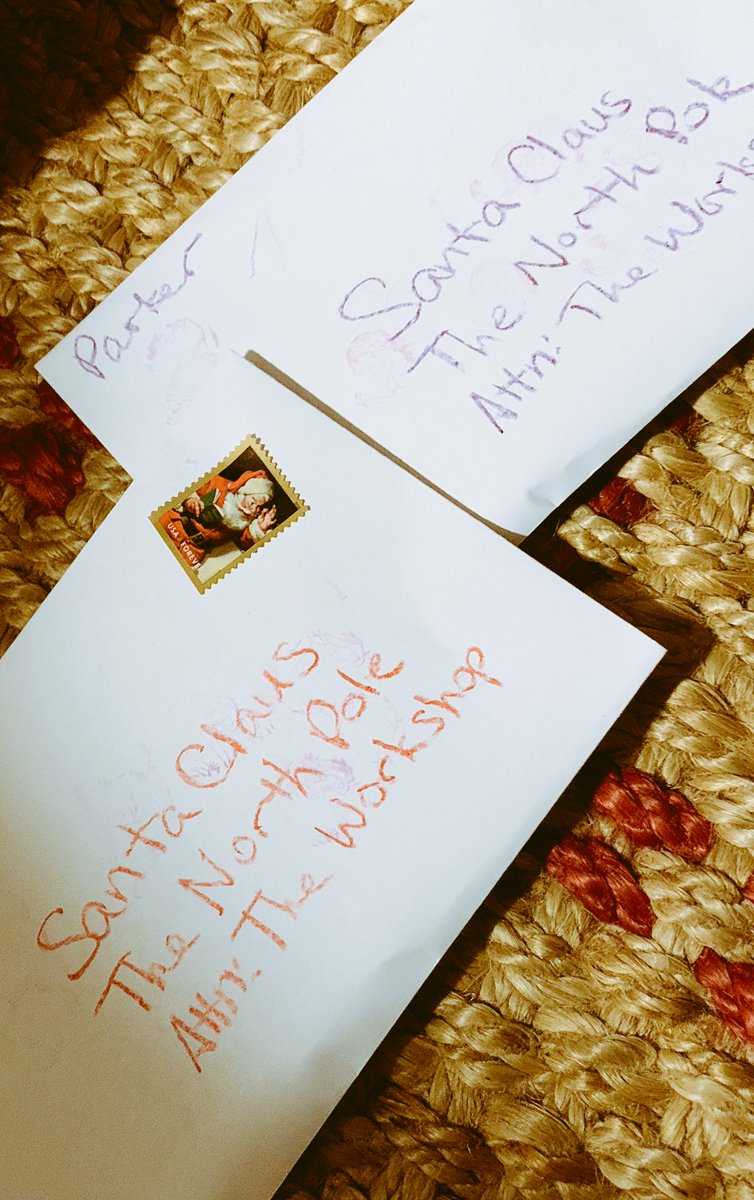 Parker
Santa Claus
The North Pole
Attn: The
USA FOREVER
Santa Claus
The North Pole
Attn: The Workshop